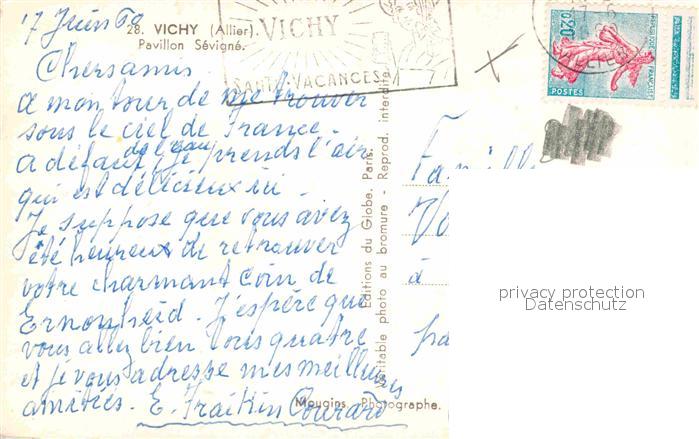 17 Juin 60
28. VICHY (Allier).
Pavillon Sévigné.
VICHY
SANTÉ VACANCES
0,20
POSTES
Chers amis
A mon tour de me trouver
sous le ciel de France.
A défaut de l'eau, je prends l'air
qui est délicieux ici.
Je suppose que vous avez
été heureux de retrouver
votre charmant coin de
J'espère que
vous allez bien tous quatre
et je vous adresse mes meilleures
amitiés. E. Fraikin
Editions du Globe. Paris.
Véritable photo au bromure - Reprod. interdite
Mougins, Photographe.
Famill
Vo
à
pa
privacy protection
Datenschutz